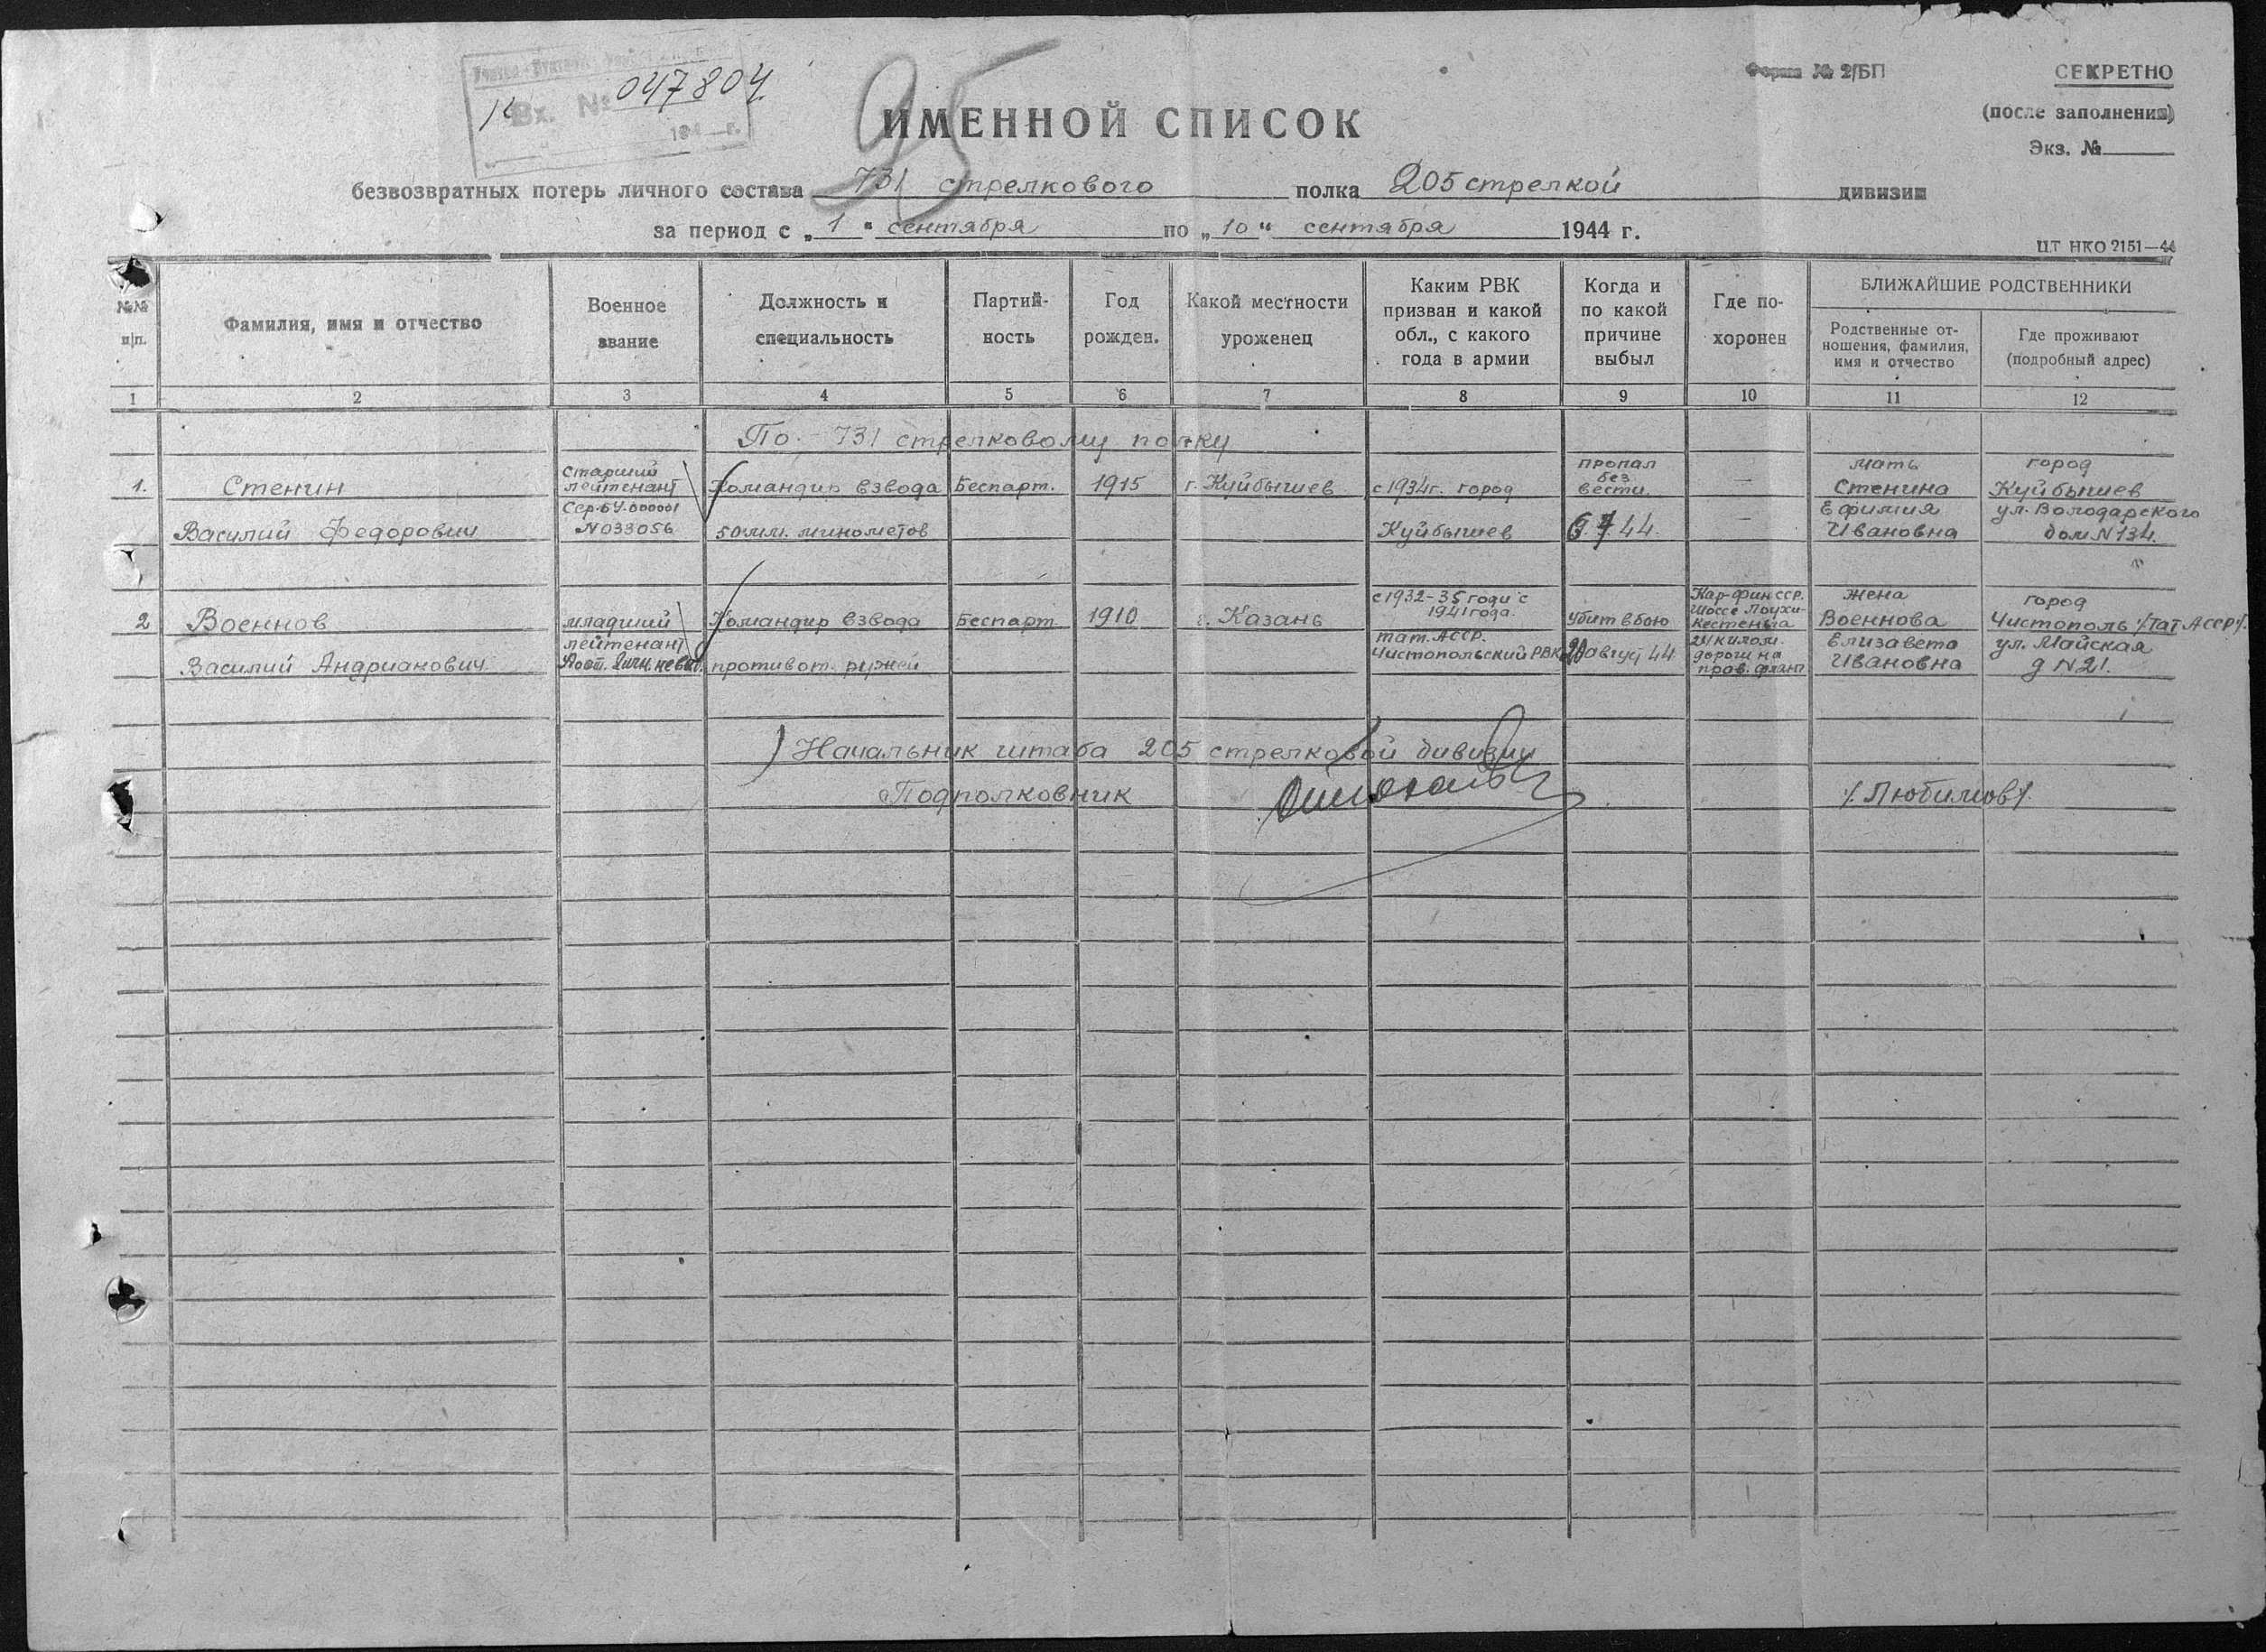 Вх. № 047804
194 г.
95
Форма № 2/БП
СЕКРЕТНО
(после заполнения)
Экз. №
ИМЕННОЙ СПИСОК
безвозвратных потерь личного состава 731 стрелкового полка 205 стрелкой дивизии
за период с „1“ сентября по „10“ сентября 1944 г.
ЦТ НКО 2151—44
№№ п/п.
Фамилия, имя и отчество
Военное звание
Должность и специальность
Партий-
ность
Год рожден.
Какой местности уроженец
Каким РВК
призван и какой
обл., с какого
года в армии
Когда и
по какой
причине
выбыл
Где по-
хоронен
БЛИЖАЙШИЕ РОДСТВЕННИКИ
Родственные от-
ношения, фамилия,
имя и отчество
Где проживают
(подробный адрес)
1 2 3 4 5 6 7 8 9 10 11 12
По - 731 стрелковому полку
1.
Стенин
Василий Федорович
Старший
лейтенант
N033056
Командир взвода
50 мм. минометов
Беспарт.
1915
г. Куйбышев
с 1934г. город
Куйбышев
пропал
без
вести
44.
—
—
мать
Стенина
Ефимия
Ивановна
город
Куйбышев
ул. Володарского
дом N 134.
2
Военнов
Василий Андрианович
младший
лейтенант
Командир взвода
противот. ружей
Беспарт
1910
г. Казань
с 1932-35 годи с
1941 года.
тат. АССР.
Чистопольский РВК
убит в бою
август 44
Кар-Фин ССР.
шоссе Лоухи-
Кестеньга
24 килом.
дороги на
прав. фланг
жена
Военнова
Елизавета
Ивановна
город
Чистополь /Тат АССР/.
ул. Майская
д N 21.
Начальник штаба 205 стрелковой дивизии
Подполковник /Любимов/.